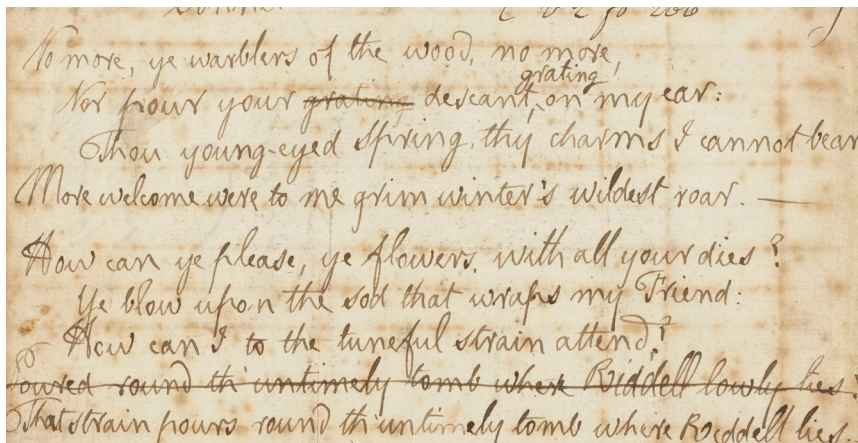 No more, ye warblers of the wood, no more,
grating
Nor pour your grating descant, on my ear:
Thou young-eyed Spring, thy charms I cannot bear
More welcome were to me grim winter's wildest roar. —
How can ye please, ye flowers, with all your dies?
Ye blow upon the sod that wraps my Friend:
How can I to the tuneful strain attend?
Poured round th' untimely tomb where Riddell lowly lies.
That strain pours round th' untimely tomb where Riddell lies